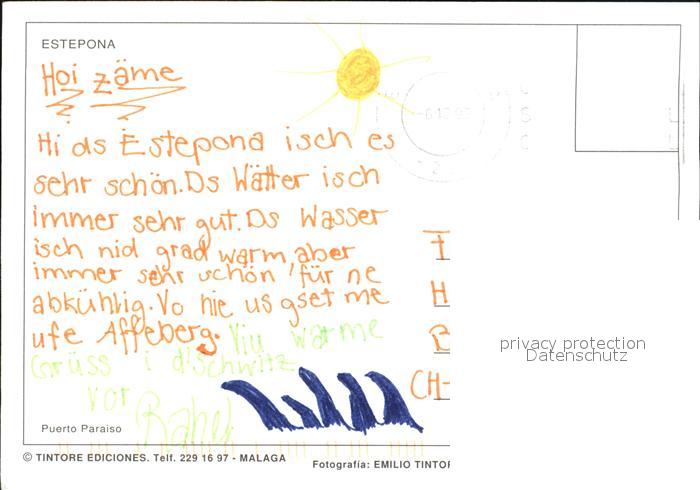 ESTEPONA
Hoi zäme
Hi ds Estepona isch es
sehr schön. Ds Wätter isch
immer sehr gut. Ds Wasser
isch nid grad warm, aber
immer sehr schön für ne
abkühlig. Vo hie us gset me
ufe Affeberg. Viu warme
Grüss i d'Schwitz
vor Rahel
H
B
CH-
privacy protection
Datenschutz
Puerto Paraiso
© TINTORE EDICIONES. Telf. 229 16 97 - MALAGA
Fotografía: EMILIO TINTOR